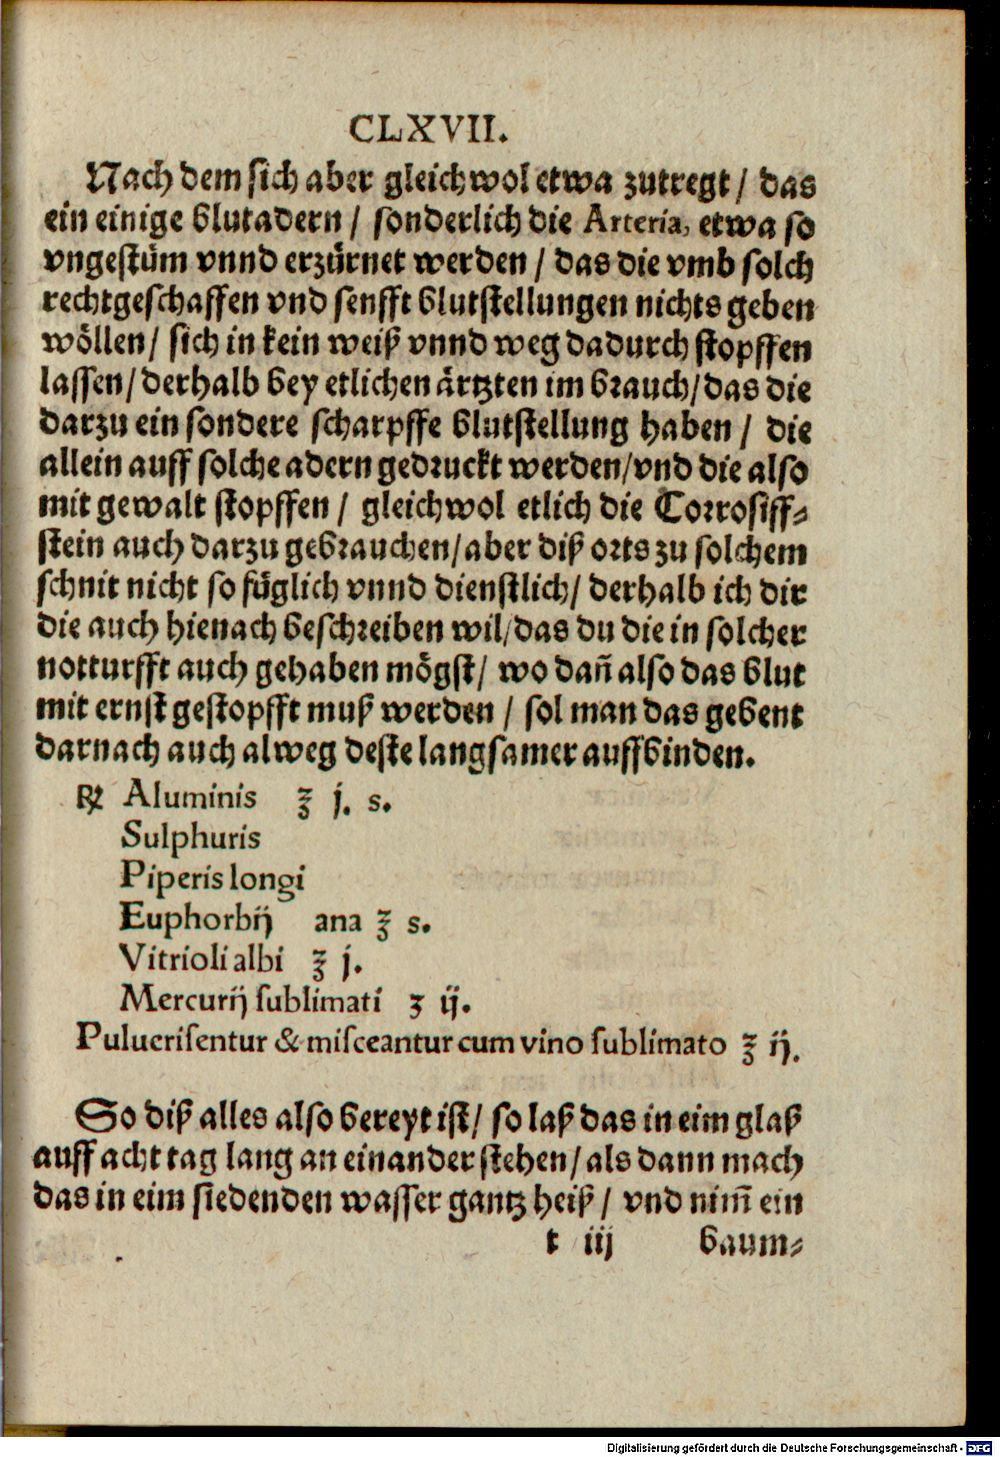 CLXVII.
Nach dem sich aber gleichwol etwa zutregt / das
ein einige blutadern / sonderlich die Arteria, etwa so
vngestüm vnnd erzürnet werden / das die vmb solch
rechtgeschaffen vnd senfft blutstellungen nichts geben
wöllen / sich in kein weiß vnnd weg dadurch stopffen
lassen / derhalb bey etlichen ärtzten im brauch / das die
darzu ein sondere scharpffe blutstellung haben / die
allein auff solche adern gedruckt werden / vnd die also
mit gewalt stopffen / gleichwol etlich die Corrosiff⸗
stein auch darzu gebrauchen / aber diß orts zu solchem
schnit nicht so füglich vnnd dienstlich / derhalb ich dir
die auch hienach beschreiben wil / das du die in solcher
notturfft auch gehaben mögst / wo dañ also das blut
mit ernst gestopfft muß werden / sol man das gebent
darnach auch alweg deste langsamer auffbinden.
℞ Aluminis ℥ j. s.
Sulphuris
Piperis longi
Euphorbij ana ℥ s.
Vitrioli albi ℥ j.
Mercurij sublimati ʒ ij.
Puluerisentur & misceantur cum vino sublimato ℥ ij.
So diß alles also bereyt ist / so laß das in eim glaß
auff acht tag lang an einander stehen / als dann mach
das in eim siedenden wasser gantz heiß / vnd nim̄ ein
t iij baum⸗
Digitalisierung gefördert durch die Deutsche Forschungsgemeinschaft - DFG